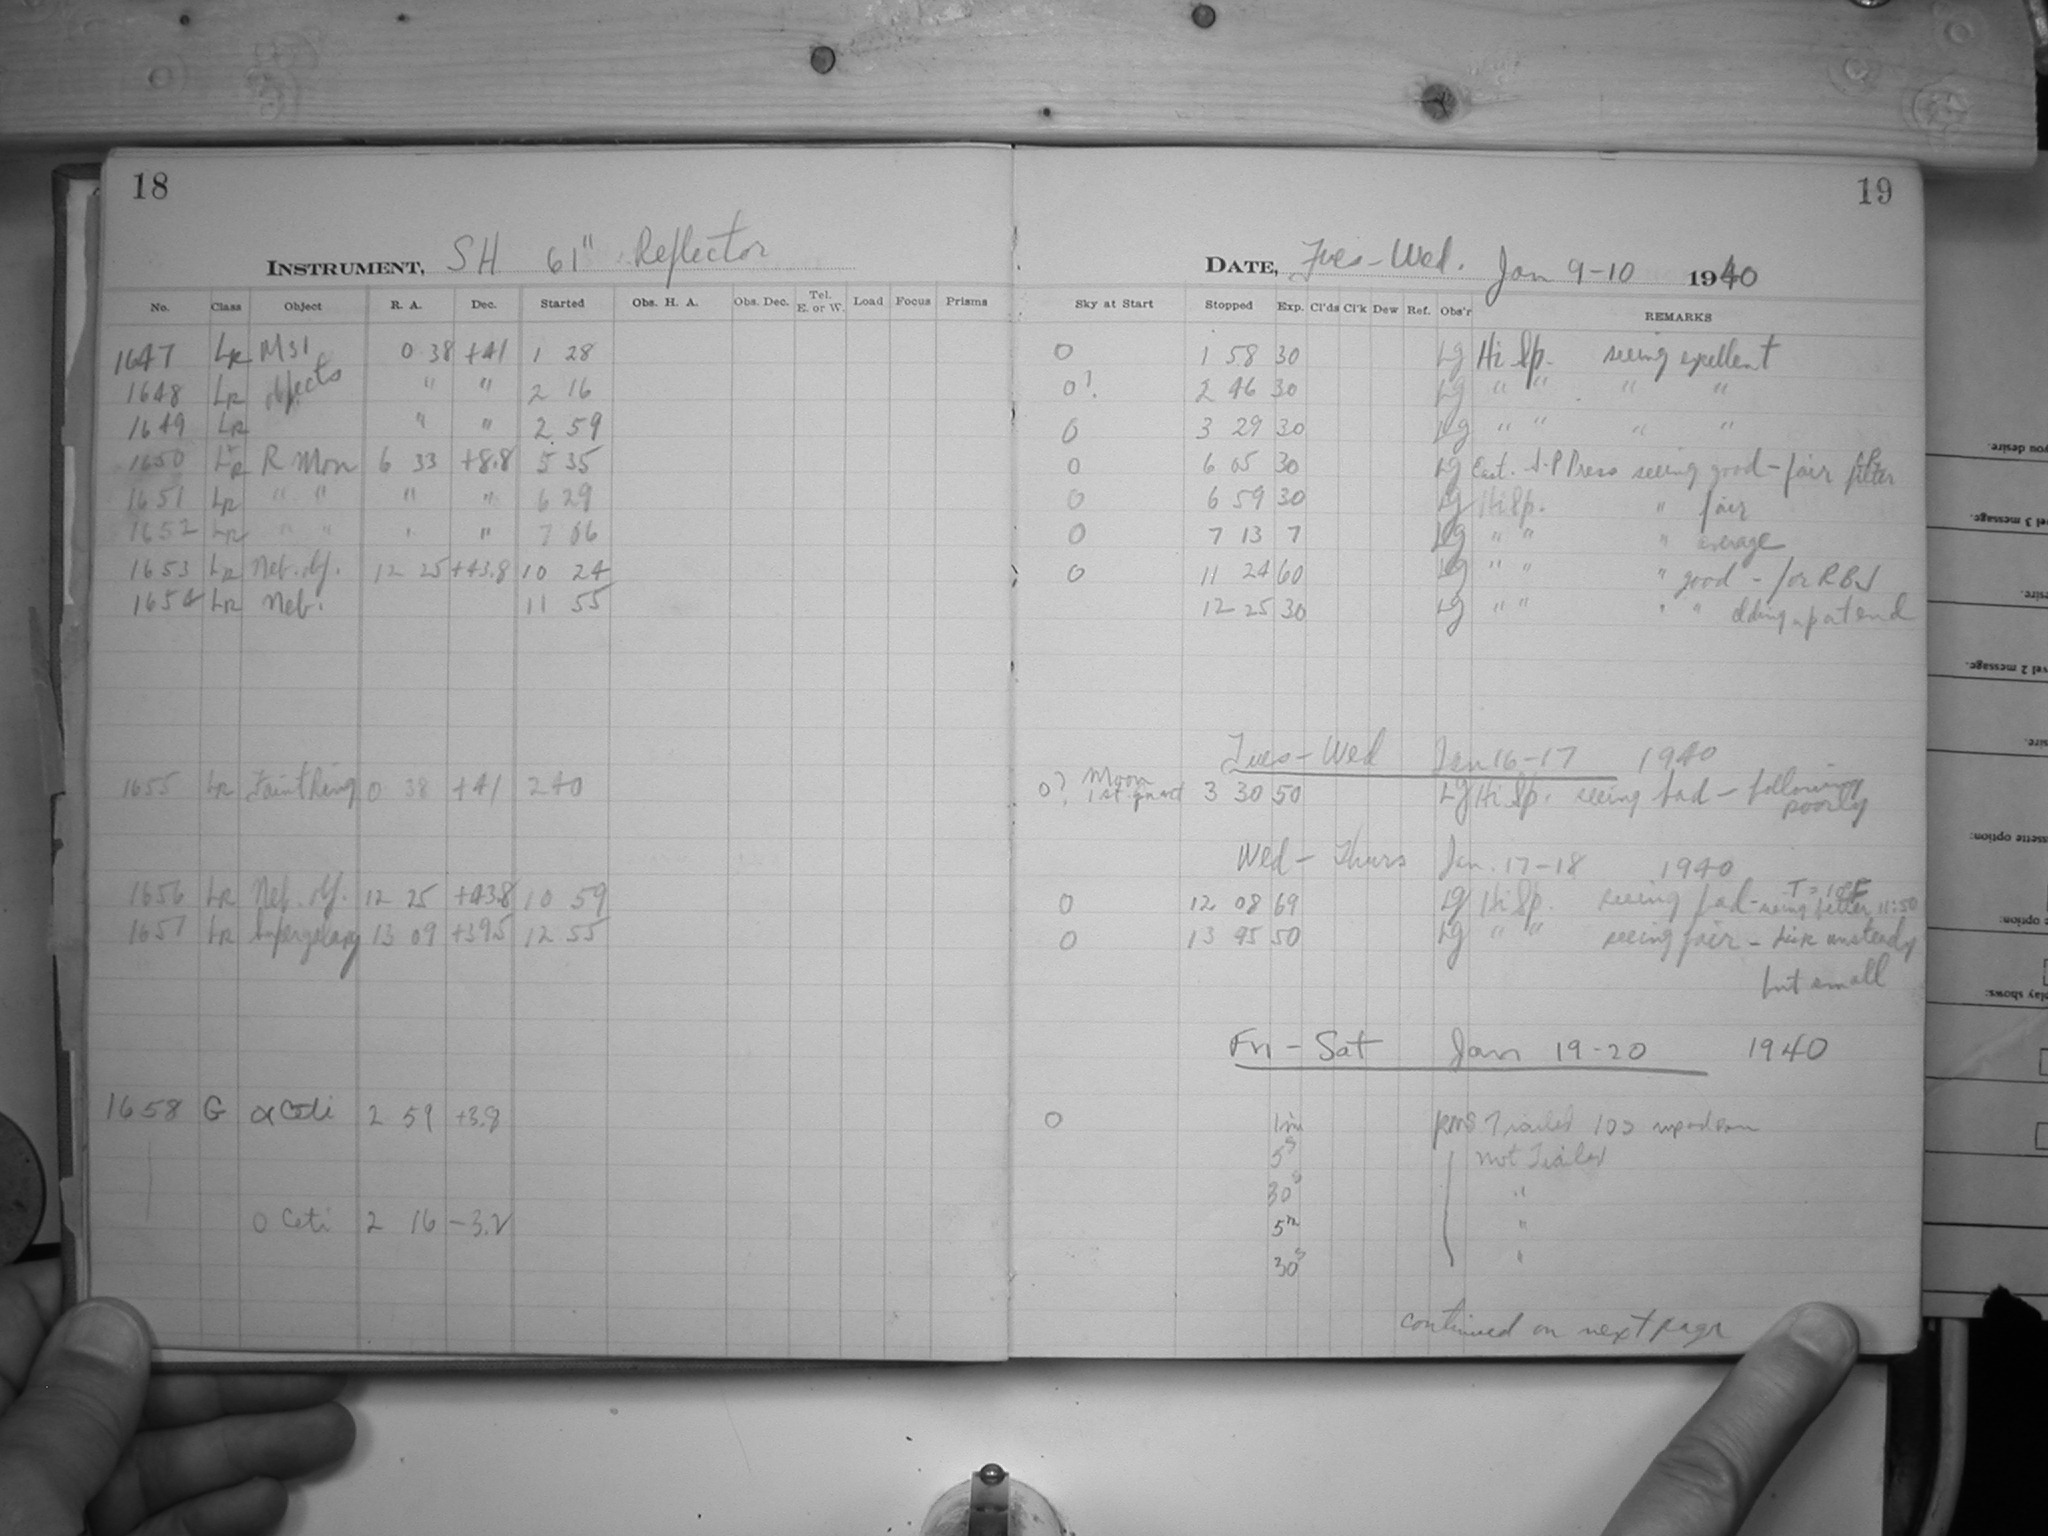 18
INSTRUMENT, SH 61" Reflector
No. Class Object R. A. Dec. Started Obs. H. A. Obs. Dec. Tel. E. or W. Load Focus Prisms
1647 LR M31 0 38 +41 1 28
1648 LR objects " " 2 16
1649 LR " " 2 59
1650 LR R Mon 6 33 +8.8 5 35
1651 LR " " " " 6 29
1652 LR " " " " 7 06
1653 LR Neb. obj. 12 25 +43.8 10 24
1654 LR Neb. 11 55
1655 LR Faint Ring 0 38 +41 2 40
1656 LR Neb. obj. 12 25 +43.8 10 59
1657 LR Supergalaxy 13 09 +39.5 12 55
1658 G α Ceti 2 59 +3.8
o Ceti 2 16 -3.2
19
DATE, Tues-Wed. Jan 9-10 1940
Sky at Start Stopped Exp. Cl'ds Cl'k Dew Ref. Obs'r REMARKS
0 1 58 30 Lg Hi Sp. seeing excellent
0? 2 46 30 Lg " " " "
0 3 29 30 Lg " " " "
0 6 05 30 Lg seeing good - fair filter
0 6 59 30 Lg Hi Sp. " fair
0 7 13 7 Lg " " " average
0 11 24 60 Lg " " " good - for RBJ
12 25 30 Lg " " " " at end
Tues-Wed Jan 16-17 1940
0? Moon 1st quart 3 30 50 Lg Hi Sp. seeing bad - following poorly
Wed - Thurs Jan. 17-18 1940
0 12 08 69 Lg Hi Sp. seeing bad - better 11:50
0 13 45 50 Lg " " seeing fair - disk unsteady
but small
Fri - Sat Jan 19-20 1940
0 1m Trailed 103
5s not Trailed
30s "
5m "
30s "
continued on next page